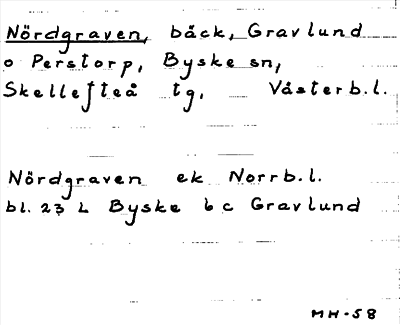 Nördgraven, bäck, Gravlund
o Perstorp, Byske sn,
Skellefteå tg, Västerb.l.
Nördgraven ek Norrb.l.
bl. 23 L Byske 6 c Gravlund
MH-58